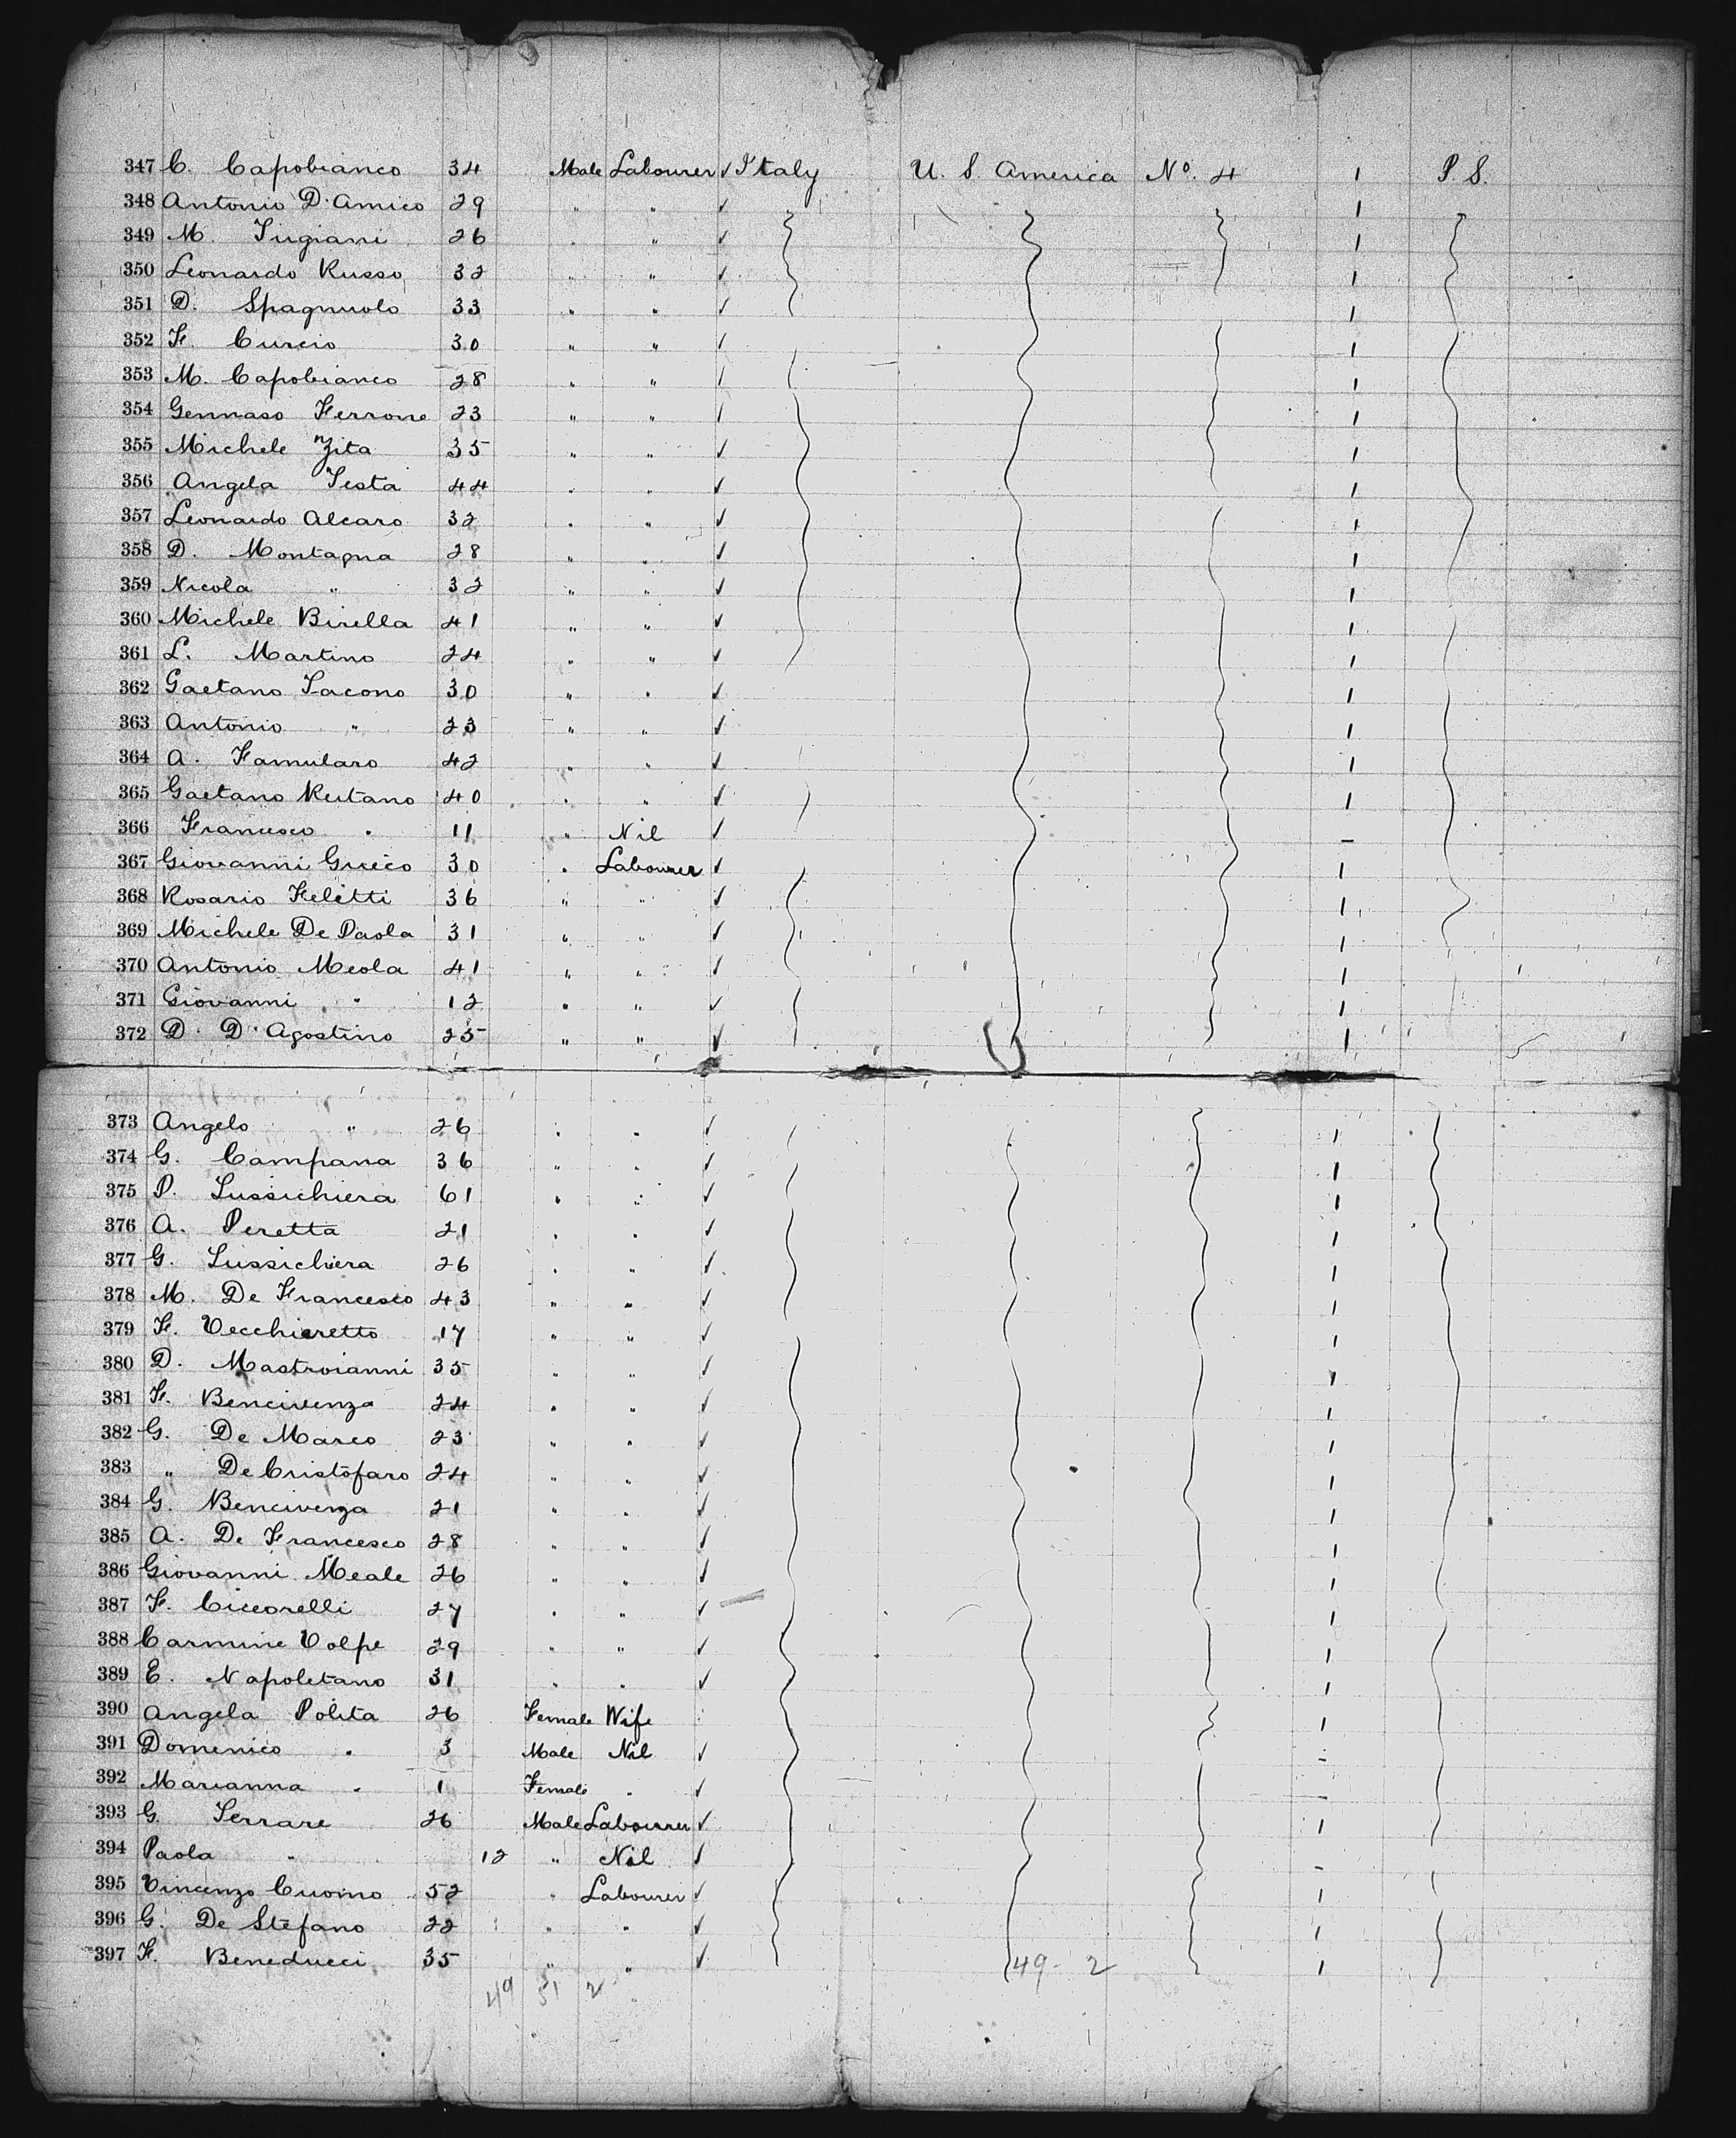 347 C. Capobianco 34 Male Labourer ✓ Italy U. S. America No. 4 1 P. S.
348 Antonio D'Amico 29 " " ✓ 1
349 M. 26 " " ✓ 1
350 Leonardo Russo 32 " " ✓ 1
351 D. Spagnuolo 33 " " ✓ 1
352 F. Curcio 30 " " / 1
353 M. Capobianco 28 " " / 1
354 Gennaso Ferrone 23 " " / 1
355 Michele Zita 35 " " ✓ 1
356 Angela Testa 44 " " ✓ 1
357 Leonardo Alcaro 32 " " ✓ 1
358 D. Montagna 28 " " ✓ 1
359 Nicola " 32 " " ✓ 1
360 Michele Birella 41 " " ✓ 1
361 L. Martino 24 " " ✓ 1
362 Gaetano Iacono 30 " " ✓ 1
363 Antonio " 23 " " ✓ 1
364 A. Famularo 42 " " ✓ 1
365 Gaetano Rutano 40 " " ✓ 1
366 Francesco " 11 " Nil ✓ -
367 Giovanni Greco 30 " Labourer ✓ 1
368 Rosario Feletti 36 " " ✓ 1
369 Michele De Paola 31 " " ✓ 1
370 Antonio Meola 41 " " ✓ 1
371 Giovanni " 12 " " ✓ 1
372 D. D'Agostino 25 " " ✓ 1
373 Angelo " 26 " " ✓ 1
374 G. Campana 36 " " ✓ 1
375 P. Sussichiera 61 " " ✓ 1
376 A. Peretta 21 " " ✓ 1
377 G. Sussichiera 26 " " ✓ 1
378 M. De Francesco 43 " " ✓ 1
379 F. Vecchieretto 17 " " ✓ 1
380 D. Mastroianni 35 " " ✓ 1
381 F. Bencivenza 24 " " ✓ 1
382 G. De Marco 23 " " ✓ 1
383 " De Cristofaro 24 " " ✓ 1
384 G. Bencivenza 21 " " ✓ 1
385 A. De Francesco 28 " " ✓ 1
386 Giovanni Meale 26 " " ✓ 1
387 F. Ciccorelli 27 " " ✓ 1
388 Carmine Volpe 29 " " ✓ 1
389 E. Napoletano 31 " " ✓ 1
390 Angela Polita 26 Female Wife 1
391 Domenico " 3 Male Nil ✓ -
392 Marianna " 1 Female " ✓ -
393 G. Serrare 26 Male Labourer ✓ 1
394 Paola " 12 " Nil ✓ -
395 Vincenzo Cuomo 52 " Labourer ✓ 1
396 G. De Stefano 22 " " ✓ 1
397 F. Beneducci 35 " " ✓ 1
49-2
49 51 2